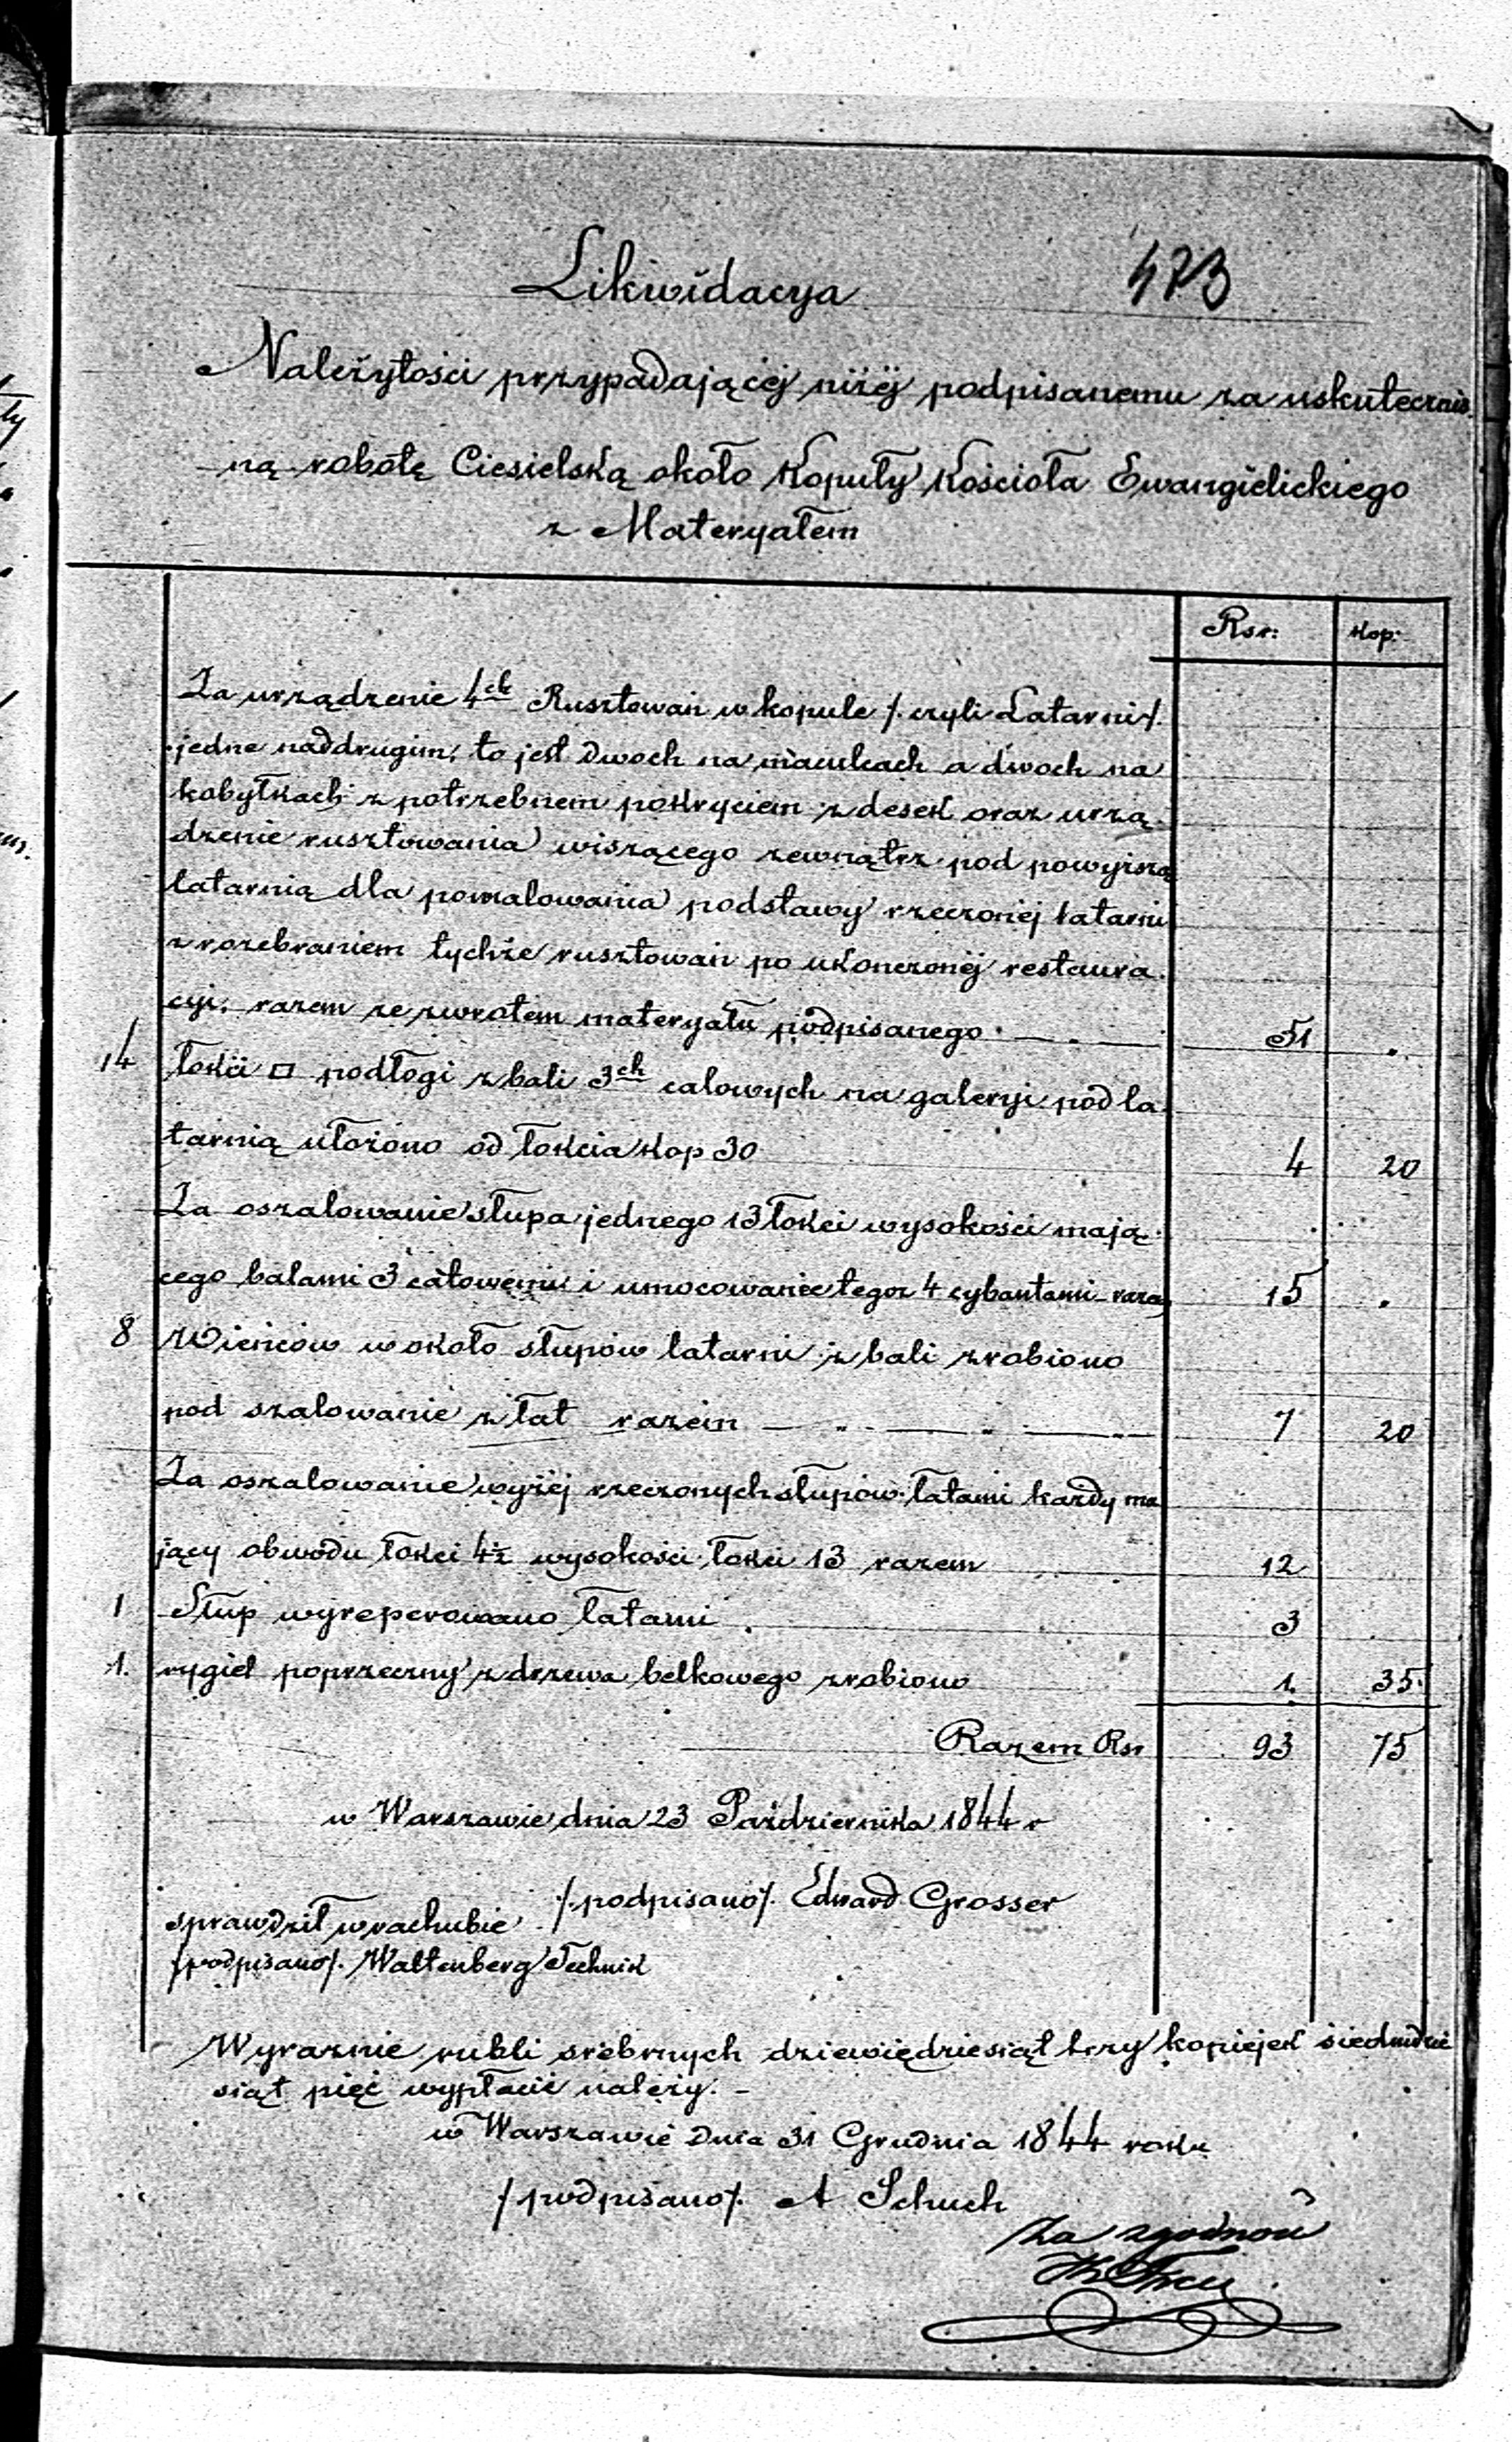 473
Likwidacya
Należytości przypadającéj niżéj podpisanemu za uskutecznio
ną robotę Ciesielską około Kopuły Kościoła Ewangielickiego
z Materyałem
Rsr: Kop:
Za urządzenie 4ch Rusztowań w kopule /. czyli Latarni /.
jedne nad drugim, to jest dwoch na maculcach a dwoch na
kobyłkach z potrzebnem pokryciem z desek oraz urzą
dzenie rusztowania wiszącego zewnątrz pod powyższą
latarnią dla pomalowania podstawy rzeczonéj latarni
z rozebraniem tychże rusztowań po ukończonéj restaura
cyi, razem ze zwrotem materyału podpisanego 51 .
14 łokci □ podłogi z bali 3ch calowych na galeryi pod la
tarnią ułożono od łokcia kop 30 4 20
Za oszalowanie słupa jednego 13 łokci wysokości mają
cego balami 3 calowemi i umocowanie tegoz 4 cybantami razem 15 .
8 Wieńców w około słupów latarni z bali zrobiono
pod szalowanie z łat razem 7 20
Za oszalowanie wyżéj rzeczonych słupów łatami każdy ma
jący obwodu łokci 4½ wysokości łokci 13 razem 12
1 Słup wyreperowano łatami . 3
1. rygiel poprzeczny z drzewa belkowego zrobiono 1. 35
Razem Rsr 93 75
w Warszawie dnia 23 Października 1844 r
/podpisano/. Edward Grosser
sprawdził w rachubie
/podpisano/. Waltenberg Technik
Wyraznie rubli srebrnych dziewięćdziesiąt trzy kopiejek siedmdzie
siąt pięć wypłacić należy. -
w Warszawie Dnia 31 Grudnia 1844 roku
/podpisano/. A Schuch
Za zgodność